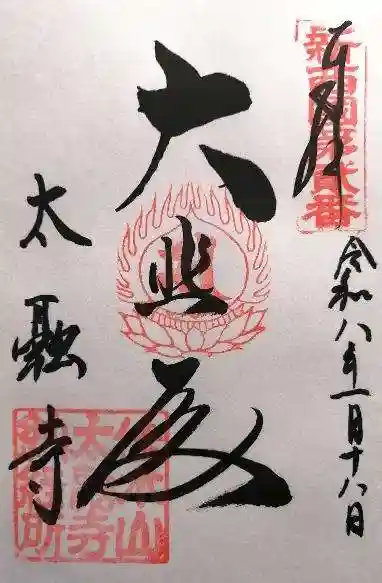 奉拝
新西国第貳番
令和八年一月十八日
大悲殿
太融寺